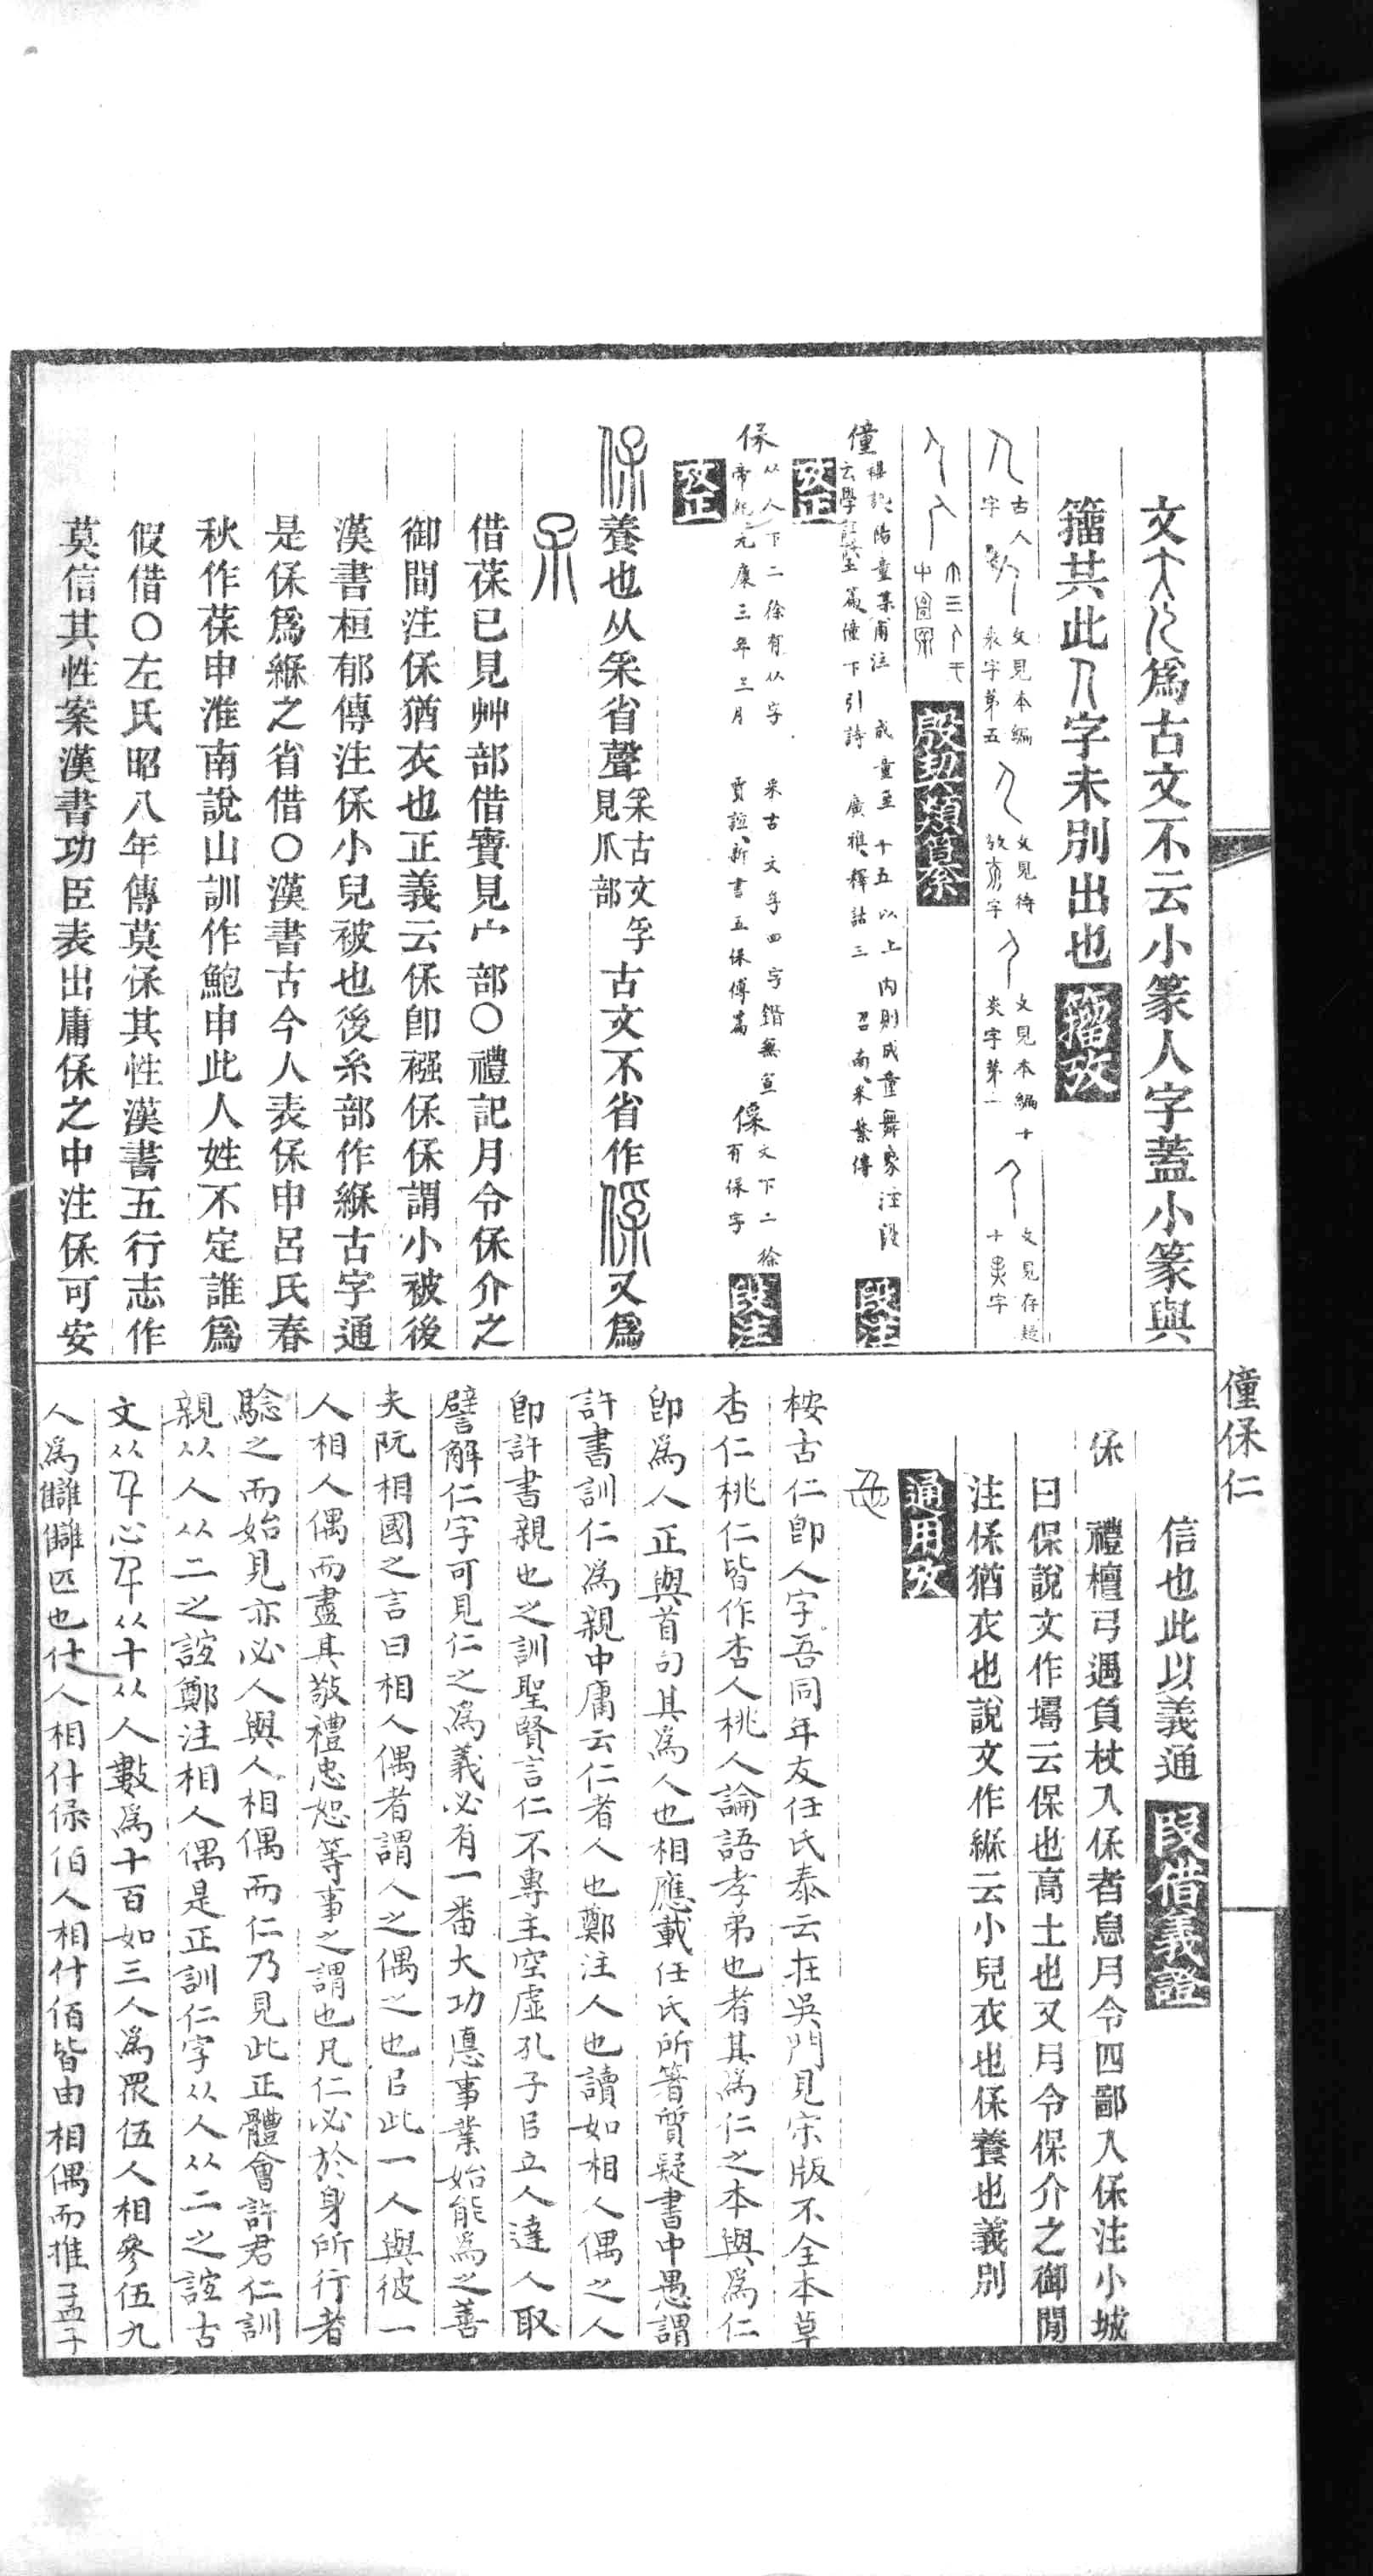 文為古文不云小篆人字蓋小篆與
籀共此字未別出也 籀攷
古人字
文見本編 表字第五
文見待攷 字
文見本編十 炎字第二
文見存疑十 字
殷契類纂
僮
成童至十五以上 內則成童舞象注 段注
云學 篇僮下引詩 廣雅釋詁三 召南采蘩傳
攷正
保 从人下二徐有从字 𤓽古文孚四字鍇無宣
帝紀元康三年三月 賈誼新書五保傅篇
保 文下二徐有保字 段注
攷正
養也从𤓽省聲 𤓽古文孚見爪部 古文不省作 又為
借葆已見艸部借寶見宀部〇禮記月令保介之
御間注保猶衣也正義云保即襁保保謂小被後
漢書桓郁傳注保小兒被也後糸部作緥古字通
是保為緥之省借〇漢書古今人表保申呂氏春
秋作葆申淮南說山訓作鮑申此人姓不定誰為
假借〇左氏昭八年傳莫保其性漢書五行志作
莫信其性案漢書功臣表出庸保之中注保可安
僮保仁
信也此以義通 叚借義證
保 禮檀弓遇負杖入保者息月令四鄙入保注小城
曰保說文作壔云保也高土也又月令保介之御閒
注保猶衣也說文作緥云小兒衣也保養也義別
通用攷
桉古仁即人字吾同年友任氏泰云在吳門見宋版不全本草
杏仁桃仁皆作杏人桃人論語孝弟也者其為仁之本與為仁
即為人正與首句其為人也相應載任氏所箸質疑書中愚謂
許書訓仁為親中庸云仁者人也鄭注人也讀如相人偶之人
即許書親也之訓聖賢言仁不專主空虛孔子㠯立人達人取
譬解仁字可見仁之為義必有一番大功悳事業始能為之善
夫阮相國之言曰相人偶者謂人之偶之也㠯此一人與彼一
人相人偶而盡其敬禮忠恕等事之謂也凡仁必於身所行者
驗之而始見亦必人與人相偶而仁乃見此正體會許君仁訓
親从人从二之誼鄭注相人偶是正訓仁字从人从二之誼古
文从 心 从十从人數為十百如三人為眾伍人相參伍九
人為讎讎匹也什人相什保佰人相什佰皆由相偶而推孟子